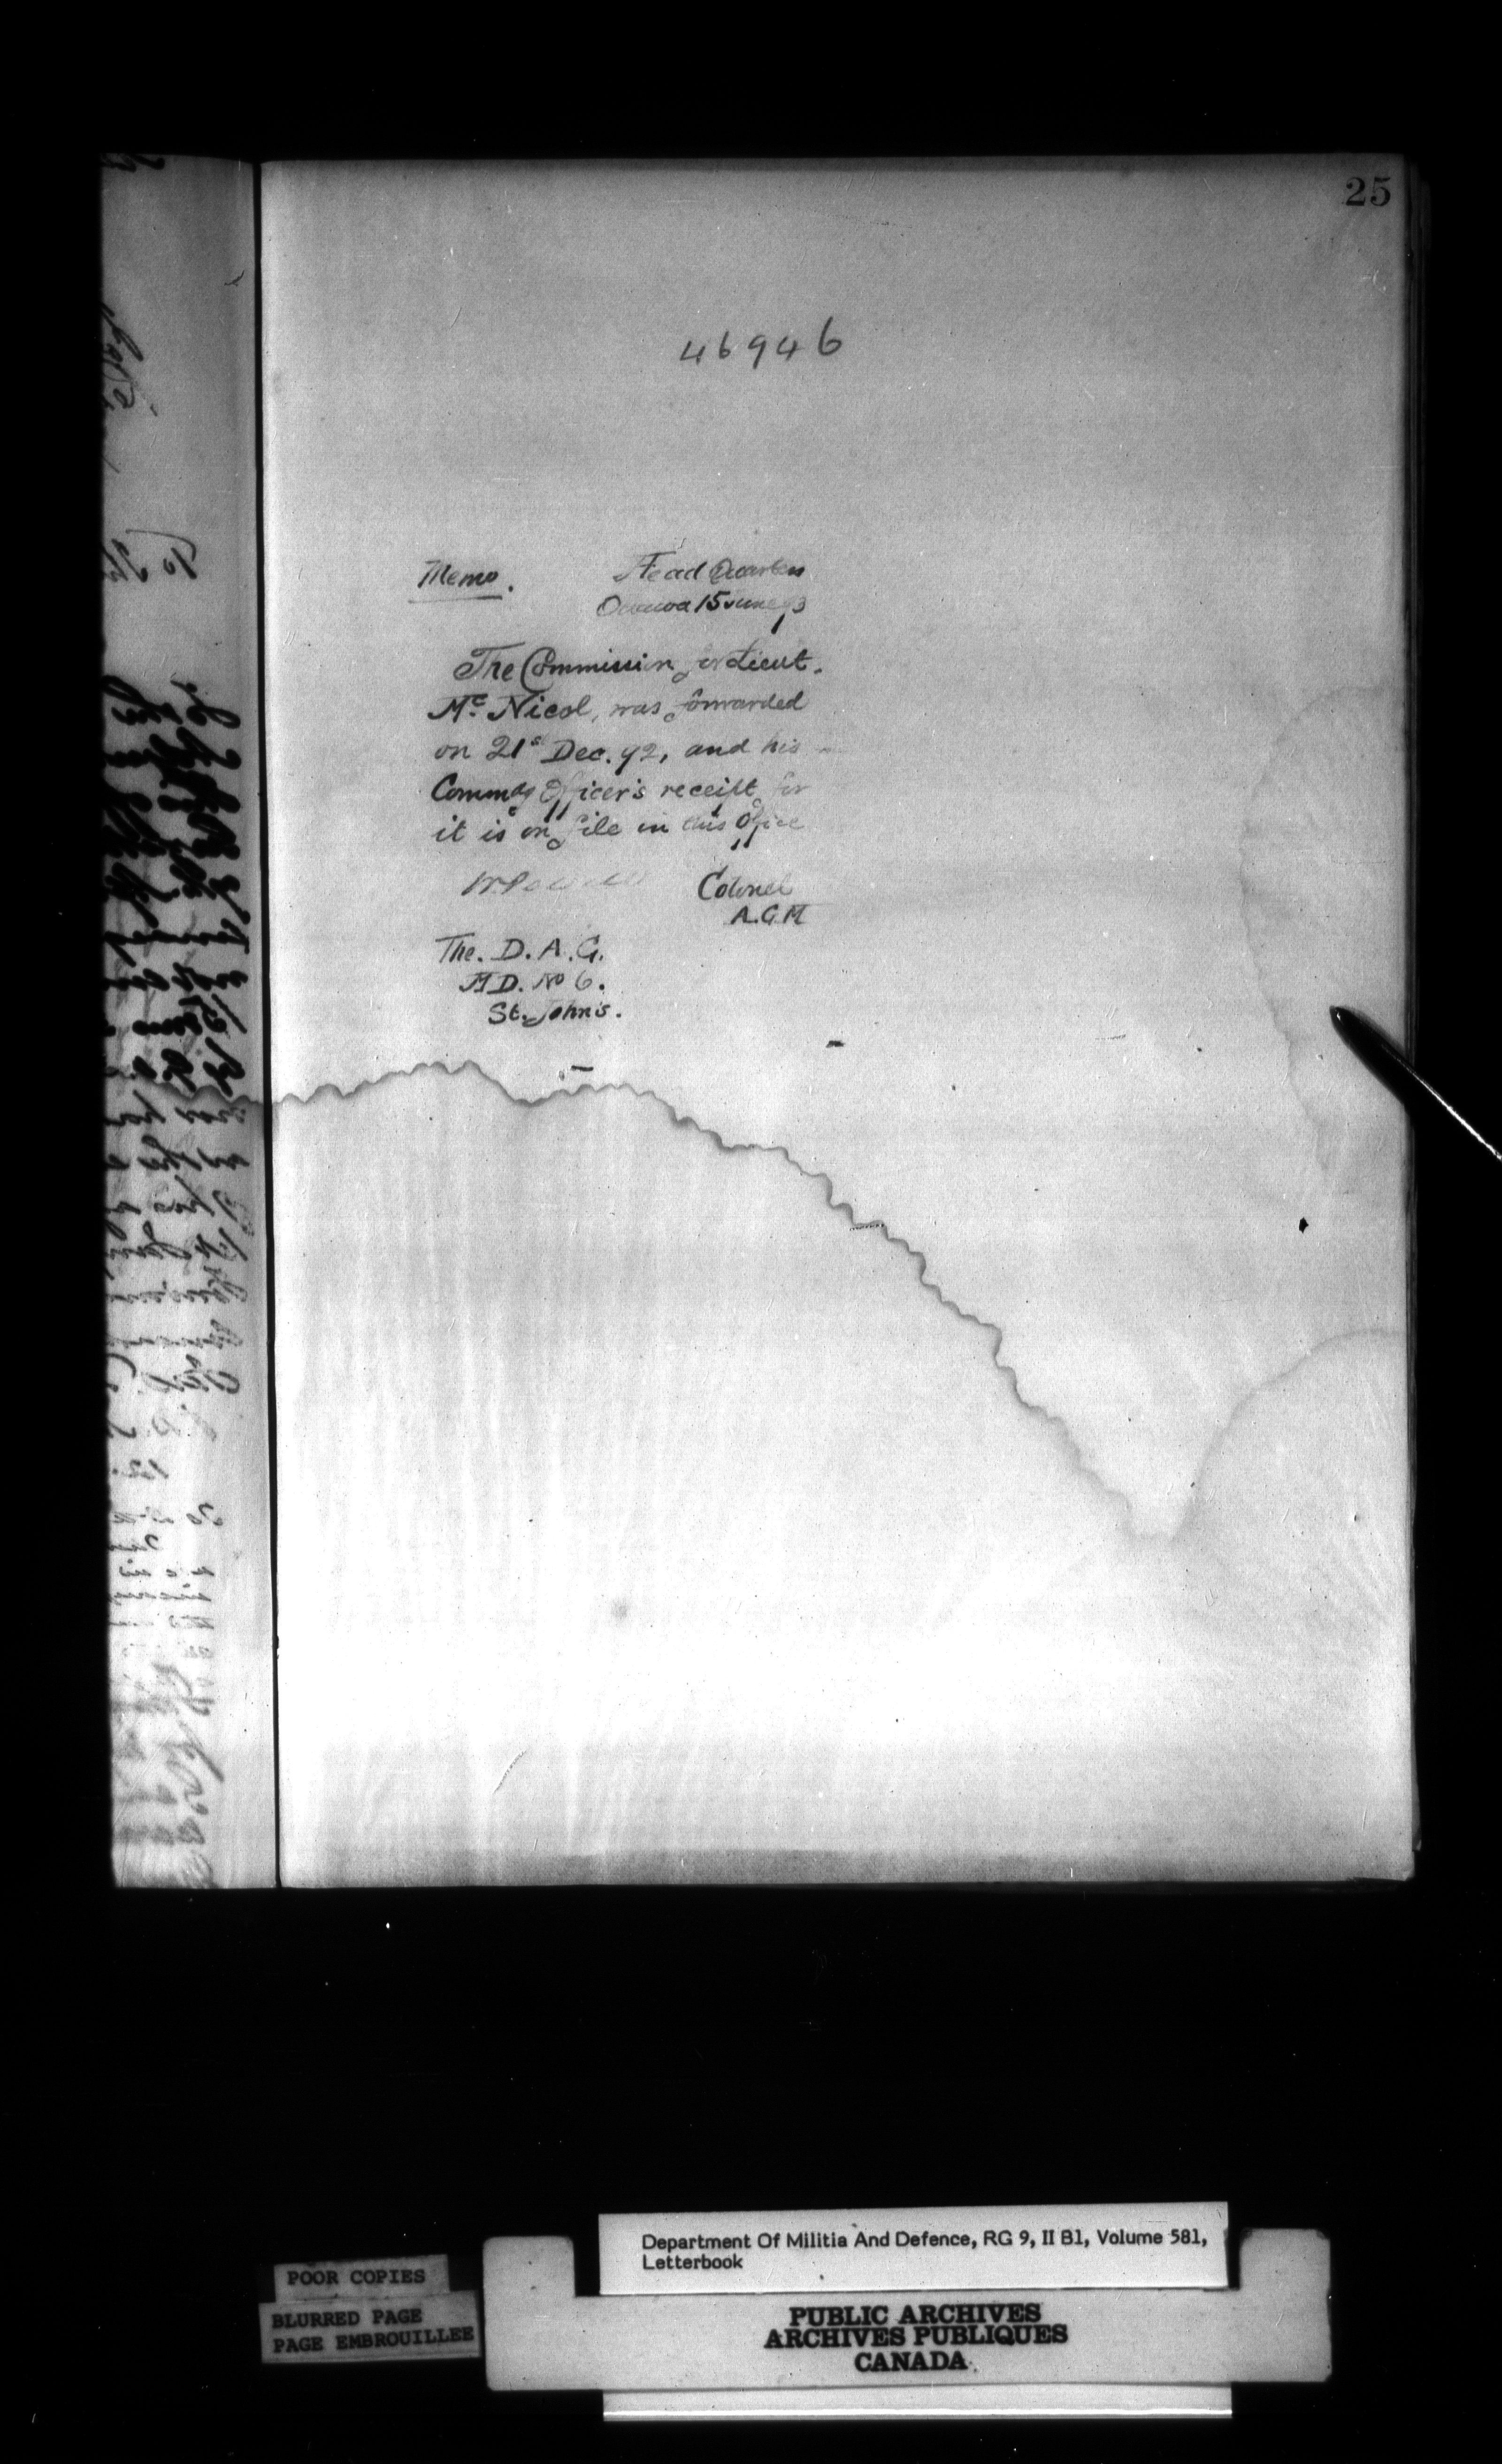 25
46946
Memo. Head Quarters
Ottawa 15 June 93
The Commission for Lieut.
Mc. Nicol, was forwarded
on 21s Dec. 92, and his
Commdg Officer's receipt for
it is on file in this Office
W. Powell Colonel
A.G.M
The. D. A. G.
M D. No 6.
St. John's.
Department Of Militia And Defence, RG 9, II B1, Volume 581,
Letterbook
POOR COPIES
BLURRED PAGE
PAGE EMBROUILLEE
PUBLIC ARCHIVES
ARCHIVES PUBLIQUES
CANADA